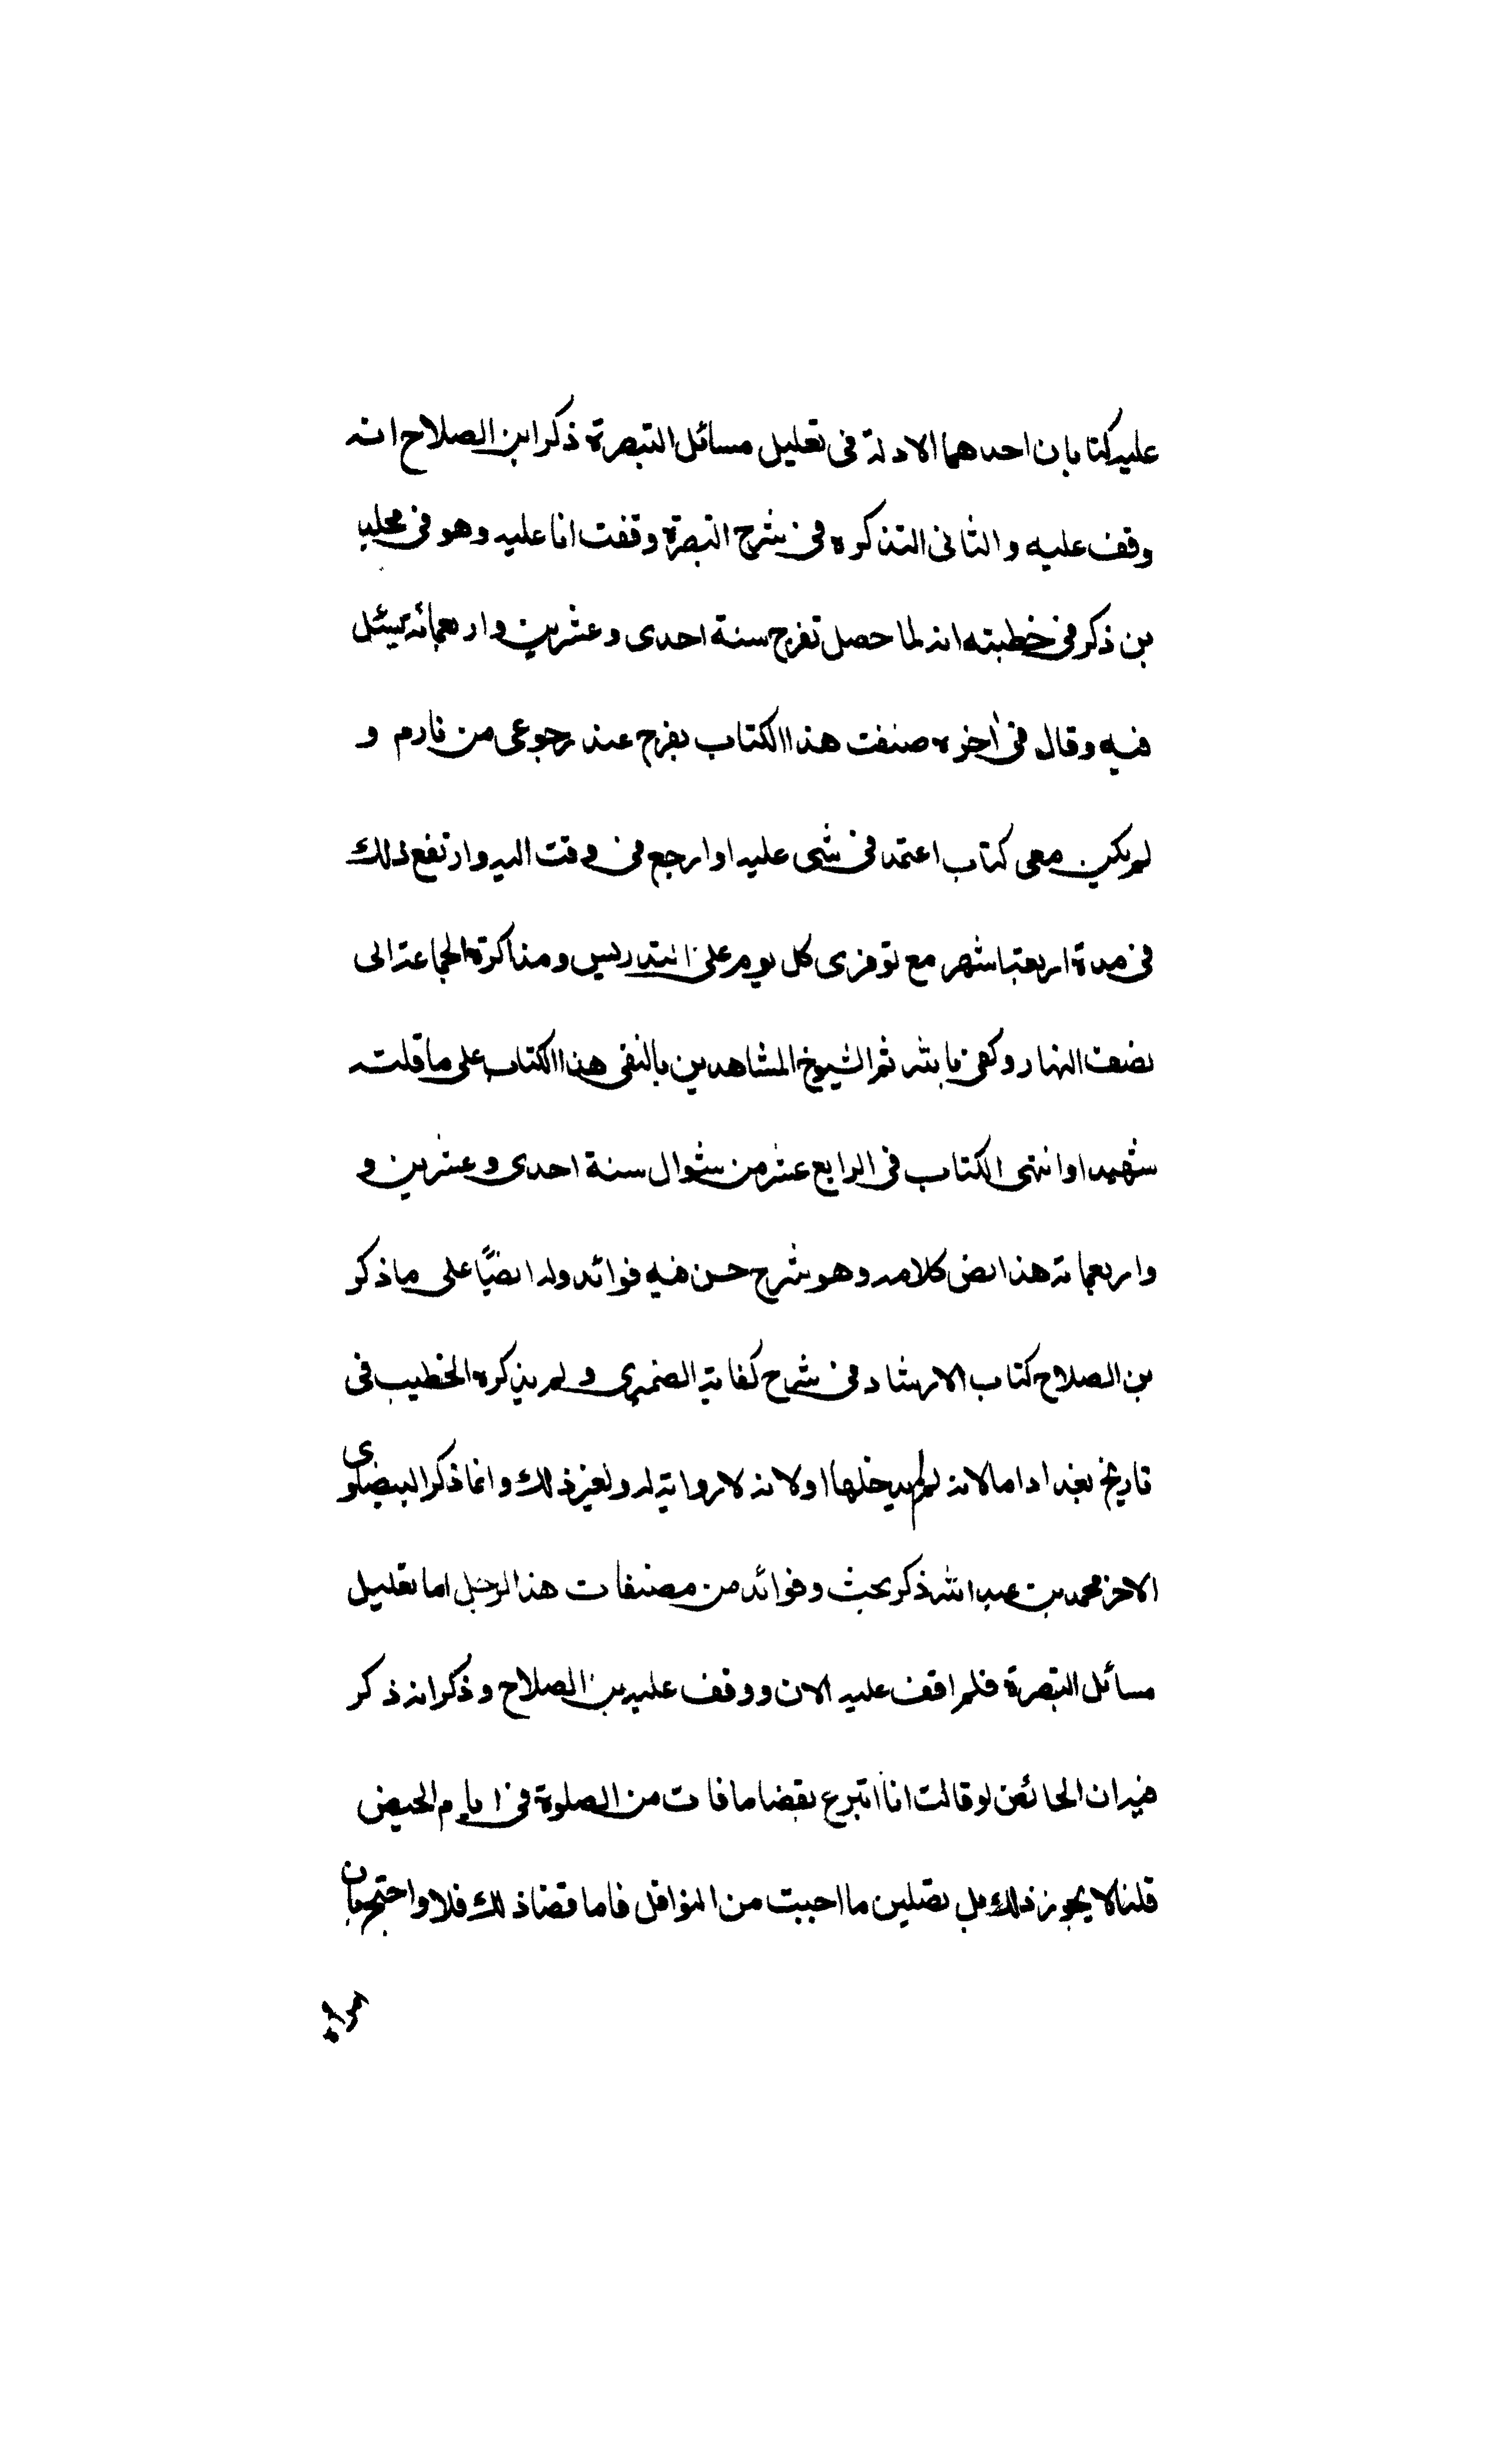 عليه كتابان احدهما الادلة فى تعليل مسائل التبصرة ذكر ابن الصلاح انه
وقف عليه والثانى التذكره فى شرح التبصرة وقفت انا عليه وهو فى مجلد
ين ذكر فى خطبته انه لما حصل تفرج سنة احدى وعشرين واربعمائة سئل
فيه وقال فى اخره صنفت هذا الكتاب بفرج عند رجوعى من نارم و
لم يكن معى كتاب اعتمد فى شى عليه او ارجع فى وقت اليه وارتفع ذلك
فى مدة اربعة اشهر مع توفرى كل يوم على التدريس ومذاكرة الجماعة الى
نصف النهار وكفى بالله ثم الشيوخ المشاهدين بالنفى هذا الكتاب على ما قلته
شهيدا وانتهى الكتاب فى الرابع عشر من شوال سنة احدى وعشرين و
واربعمائة هذا نص كلامه وهو شرح حسن فيه فوائد وله ايضًا على ما ذكر
بن الصلاح كتاب الارشاد فى شرح كفاية الضميرى ولم يذكره الخطيب فى
تاريخ بغداد اما لانه لم يدخلها اولانه لا رواية له ولغير ذلك وانما ذكر البيضاوى
الاخر محمد بن عبد الله ذكر بحث وفوائد من مصنفات هذا الرجل اما تعليل
مسائل التبصرة فلم اقف عليه الان ووقف عليه بن الصلاح وذكر انه ذكر
فيه ان الحائض لو قالت انا اتبرع بقضا ما فات من الصلوة فى ايام الحيض
قلنا لا يجوز ذلك بل تصلين ما احببت من النوافل فاما قضا ذلك فلا واحتج بان